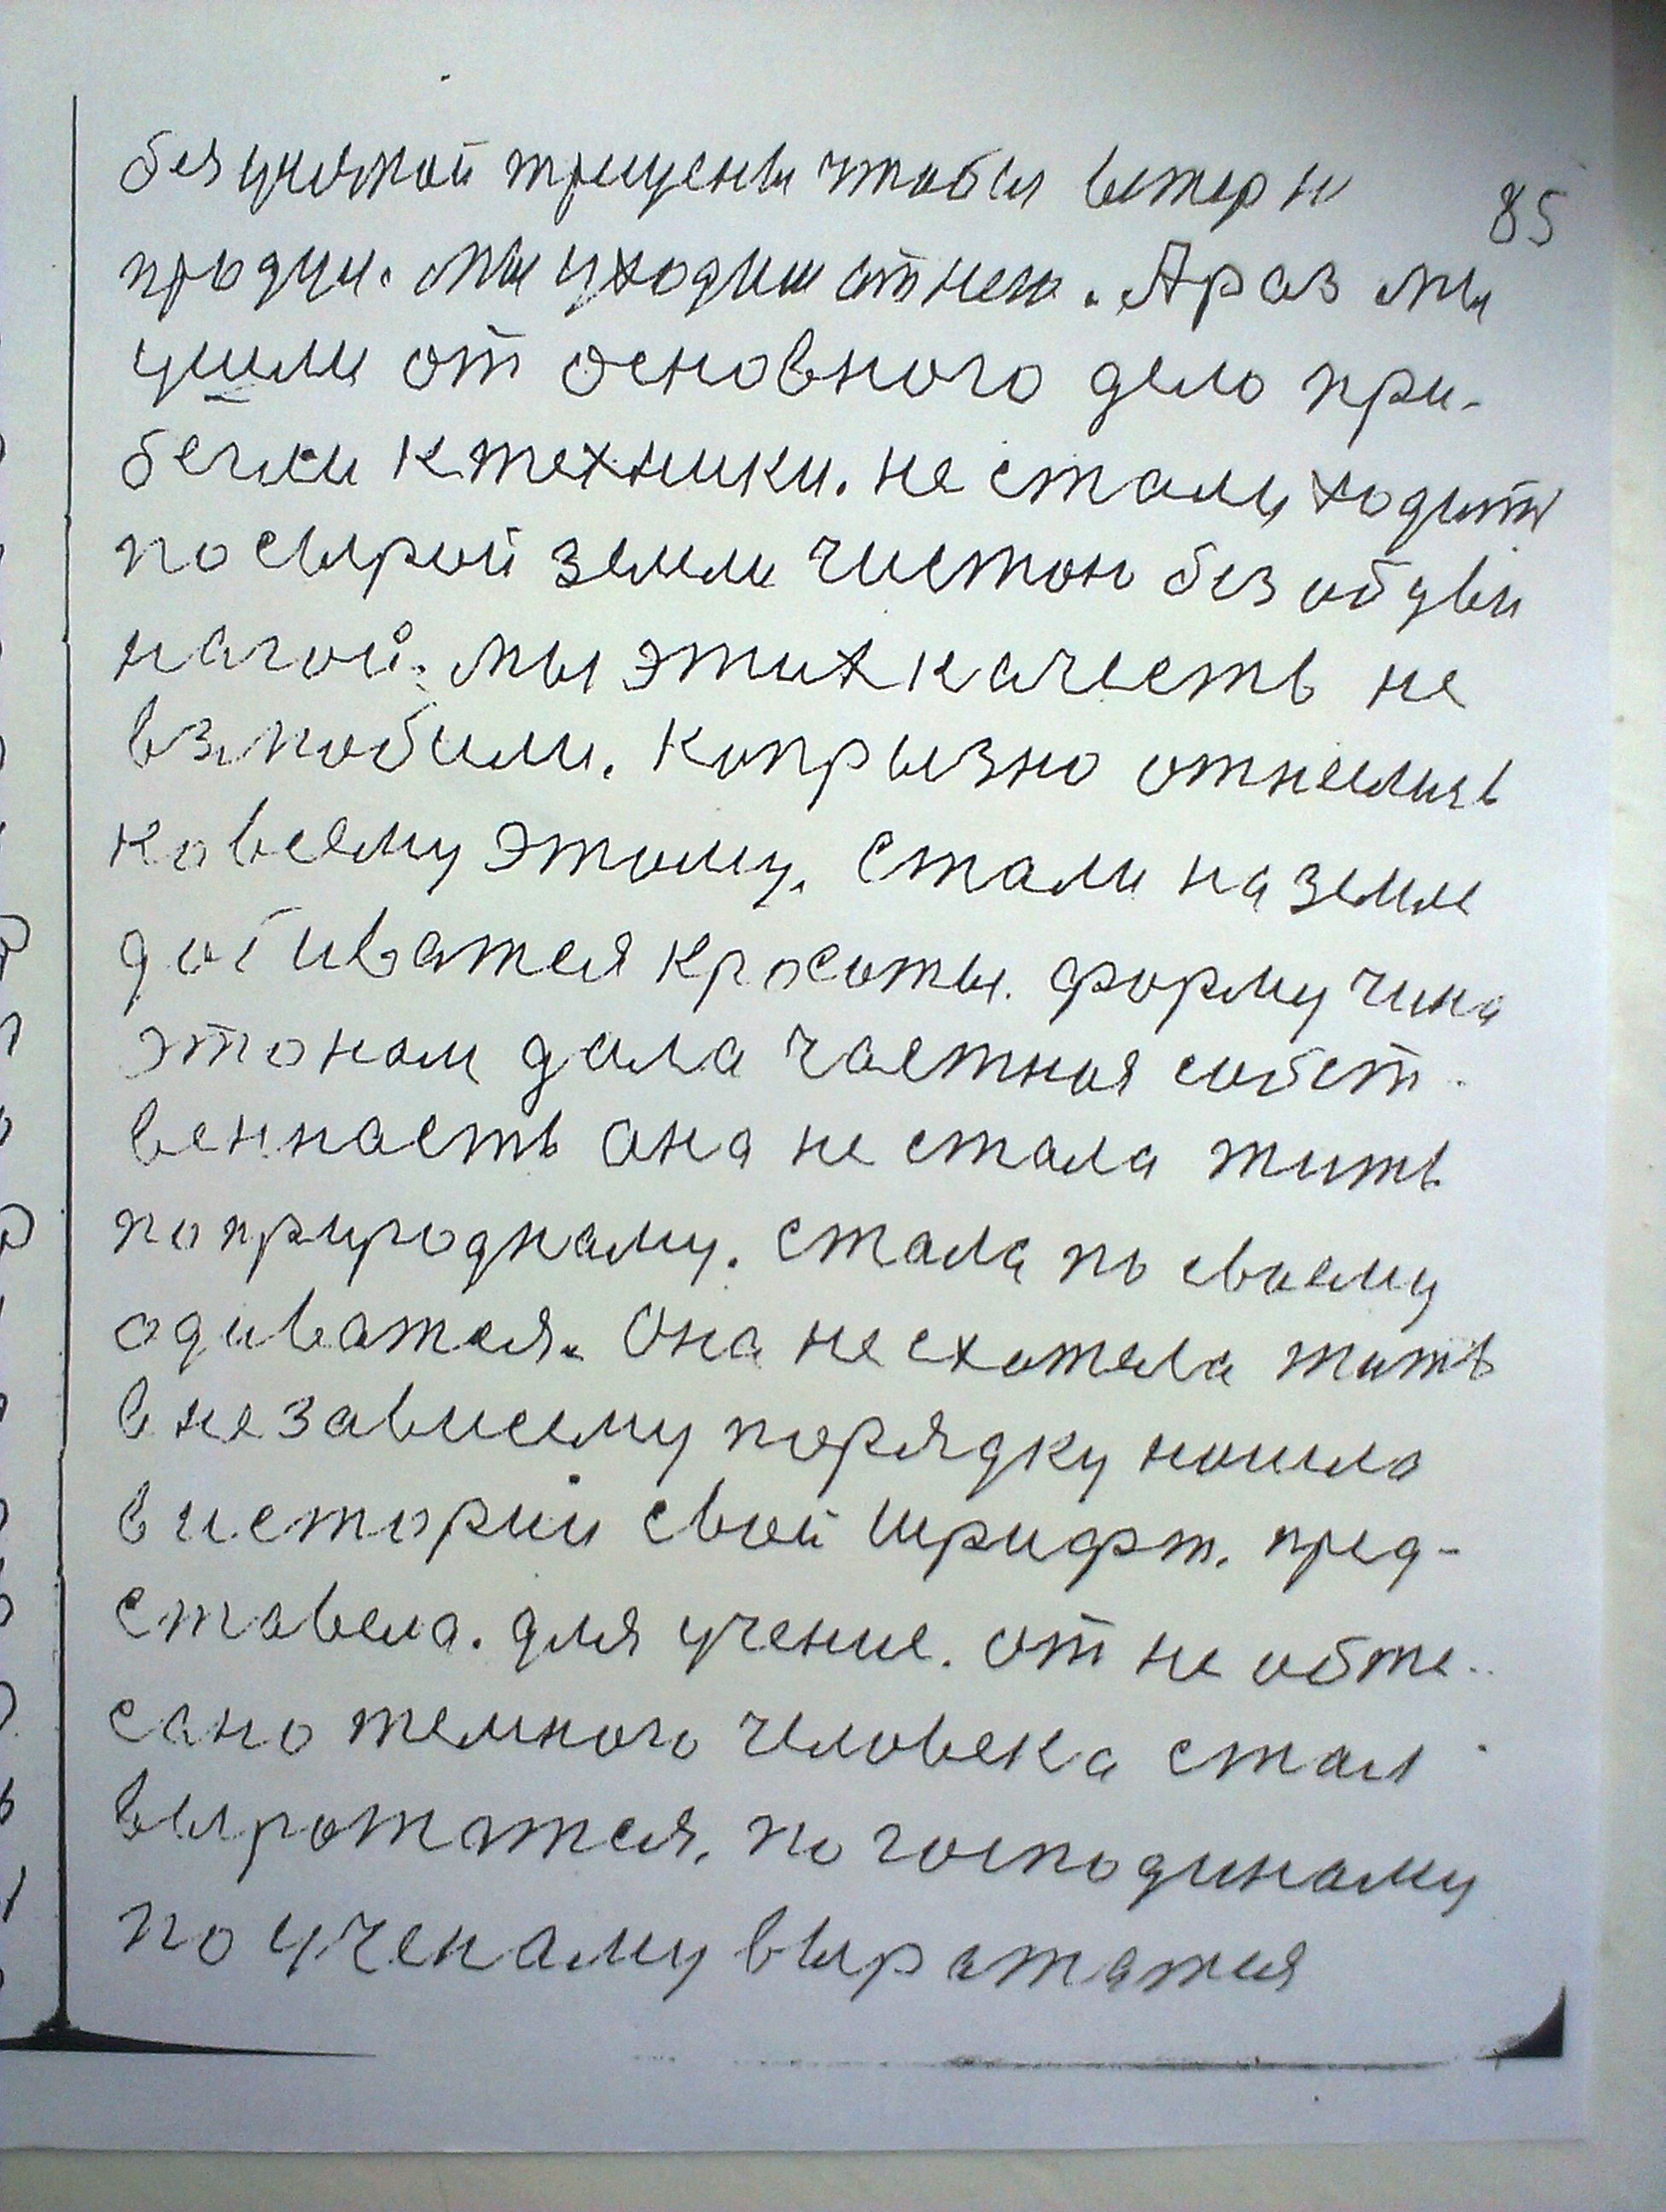 без
трещены чтобы ветер н 85
продул. мы уходим от него. А раз мы
ушли от основного дело при-
бегли к техники. не стали ходить
по сырой земли чистою без обувы
нагой. мы этих качеств не
взлюбили. копрызно отнеслись
ко всему этому. стали на земле
добиватся красоты. форму чина
это нам дала частная собст-
венность она не стала жить
по природнаму. стала по своему
одиватся. Она не схотела жить
в независему порядку нашла
в истории свой шрифт. пред-
ставела. для учение. от не обте-
сано темного человека стал
выротжатся. по господинаму
по ученаму выражатся